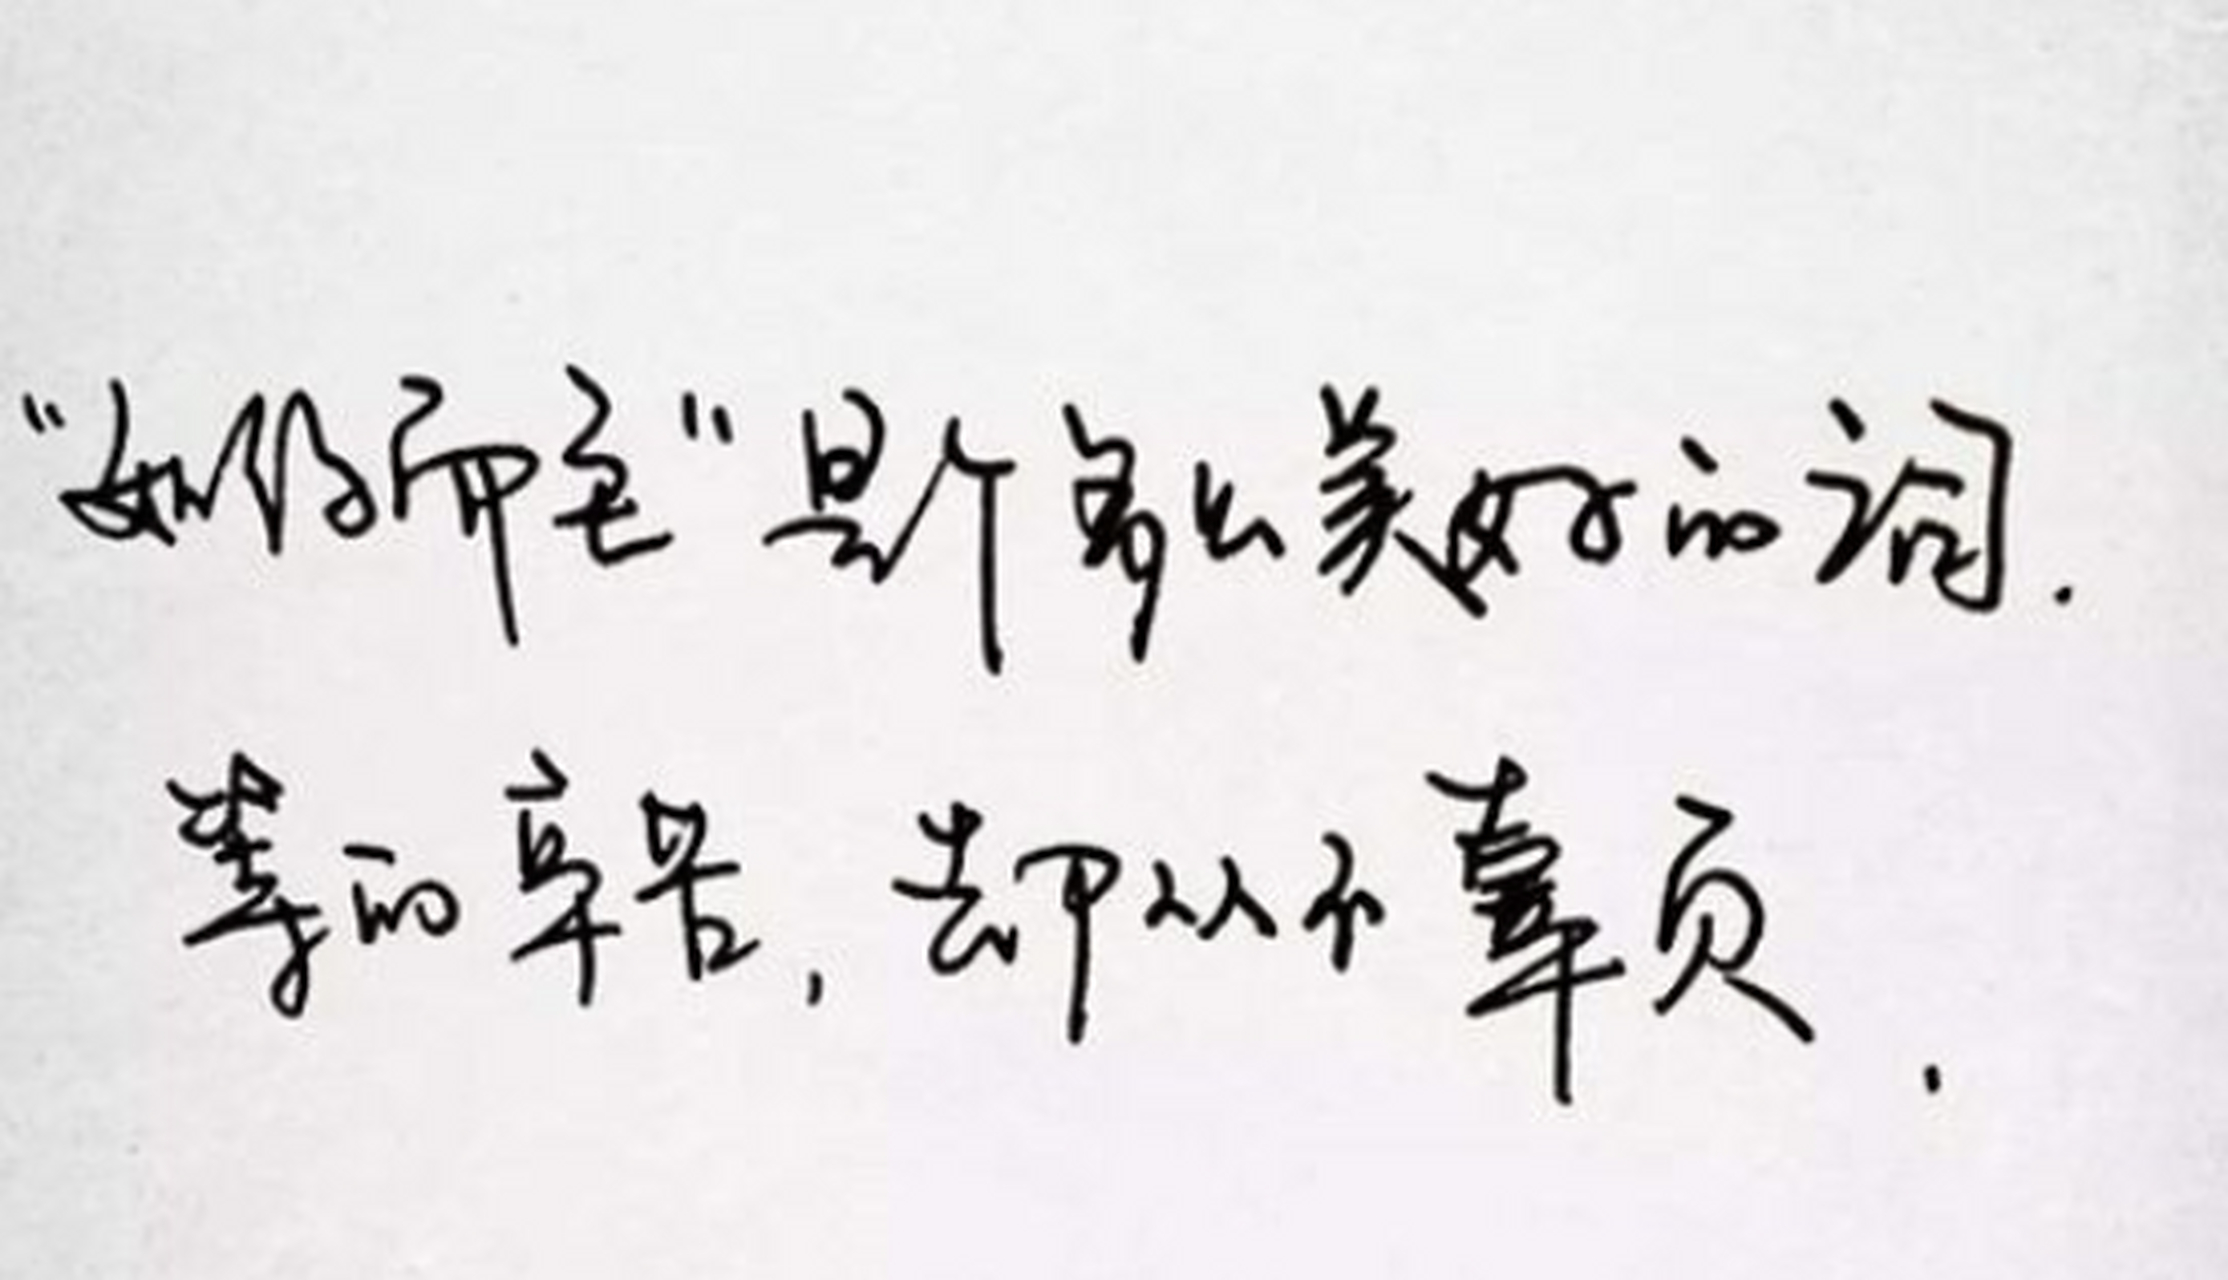 “如约而至”是个多么美好的词.
等的辛苦,却从不辜负.